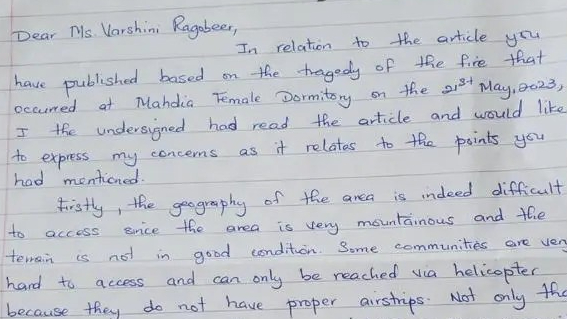 Dear Ms. Varshini Ragobeer,
In relation to the article you
have published based on the tragedy of the fire that
occurred at Mahdia Female Dormitory on the 21st May, 2023,
I the undersigned had read the article and would like
to express my concerns as it relates to the points you
had mentioned.
Firstly, the geography of the area is indeed difficult
to access since the area is very mountainous and the
terrain is not in good condition. Some communities are very
hard to access and can only be reached via helicopter
because they do not have proper airstrips. Not only tha